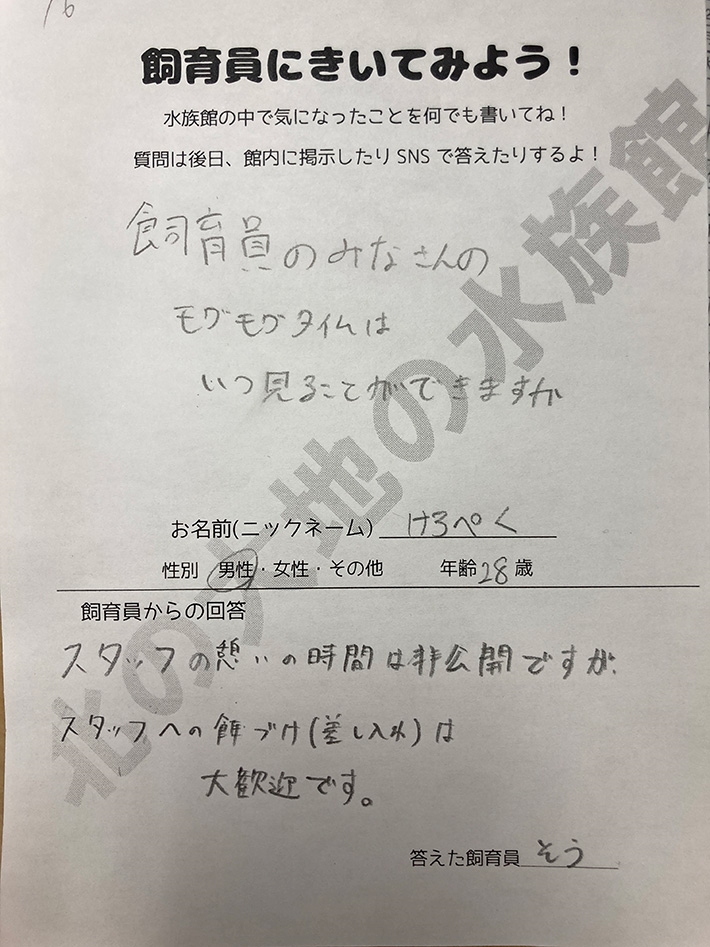 16
飼育員にきいてみよう！
水族館の中で気になったことを何でも書いてね！
質問は後日、館内に掲示したりSNSで答えたりするよ！
飼育員のみなさんの
モグモグタイムは
いつ見ることができますか
お名前(ニックネーム) けろぺく
性別 男性・女性・その他 年齢28歳
飼育員からの回答
スタッフの憩いの時間は非公開ですが、
スタッフへの餌づけ(差し入れ)は
大歓迎です。
答えた飼育員 そう
北の大地の水族館